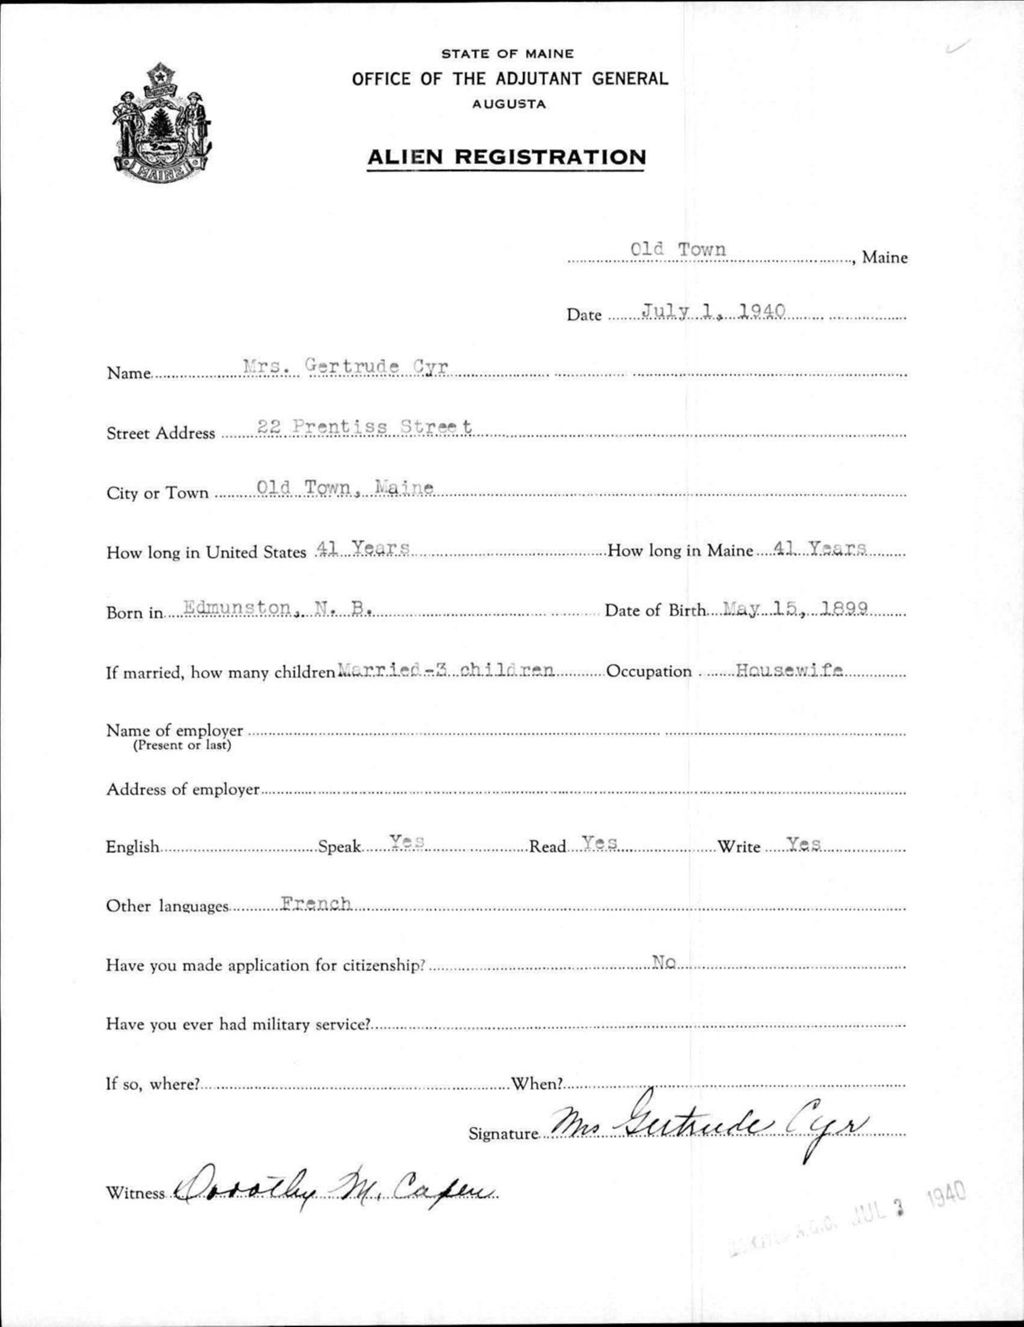 STATE OF MAINE
OFFICE OF THE ADJUTANT GENERAL
AUGUSTA
ALIEN REGISTRATION
MAINE
Old Town, Maine
Date July 1, 1940
Name Mrs. Gertrude Cyr
Street Address 22 Prentiss Street
City or Town Old Town, Maine
How long in United States 41 Years How long in Maine 41 Years
Born in Edmunston, N. B. Date of Birth May 15, 1899
If married, how many children Married-3 children Occupation Housewife
Name of employer
(Present or last)
Address of employer
English Speak Yes Read Yes Write Yes
Other languages French
Have you made application for citizenship? No
Have you ever had military service?
If so, where? When?
Signature Mrs Gertrude Cyr
Witness Dorothy M. Capen
A.G.O. JUL 3 1940